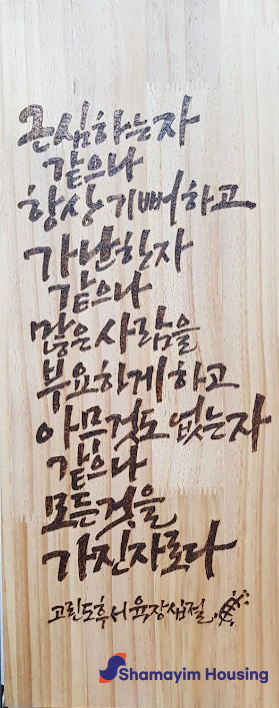 근심하는자
같으나
항상 기뻐하고
가난한자
같으나
많은 사람을
부요하게하고
아무것도 없는자
같으나
모든것을
가진자로다
고린도후서 육장십절
Shamayim Housing